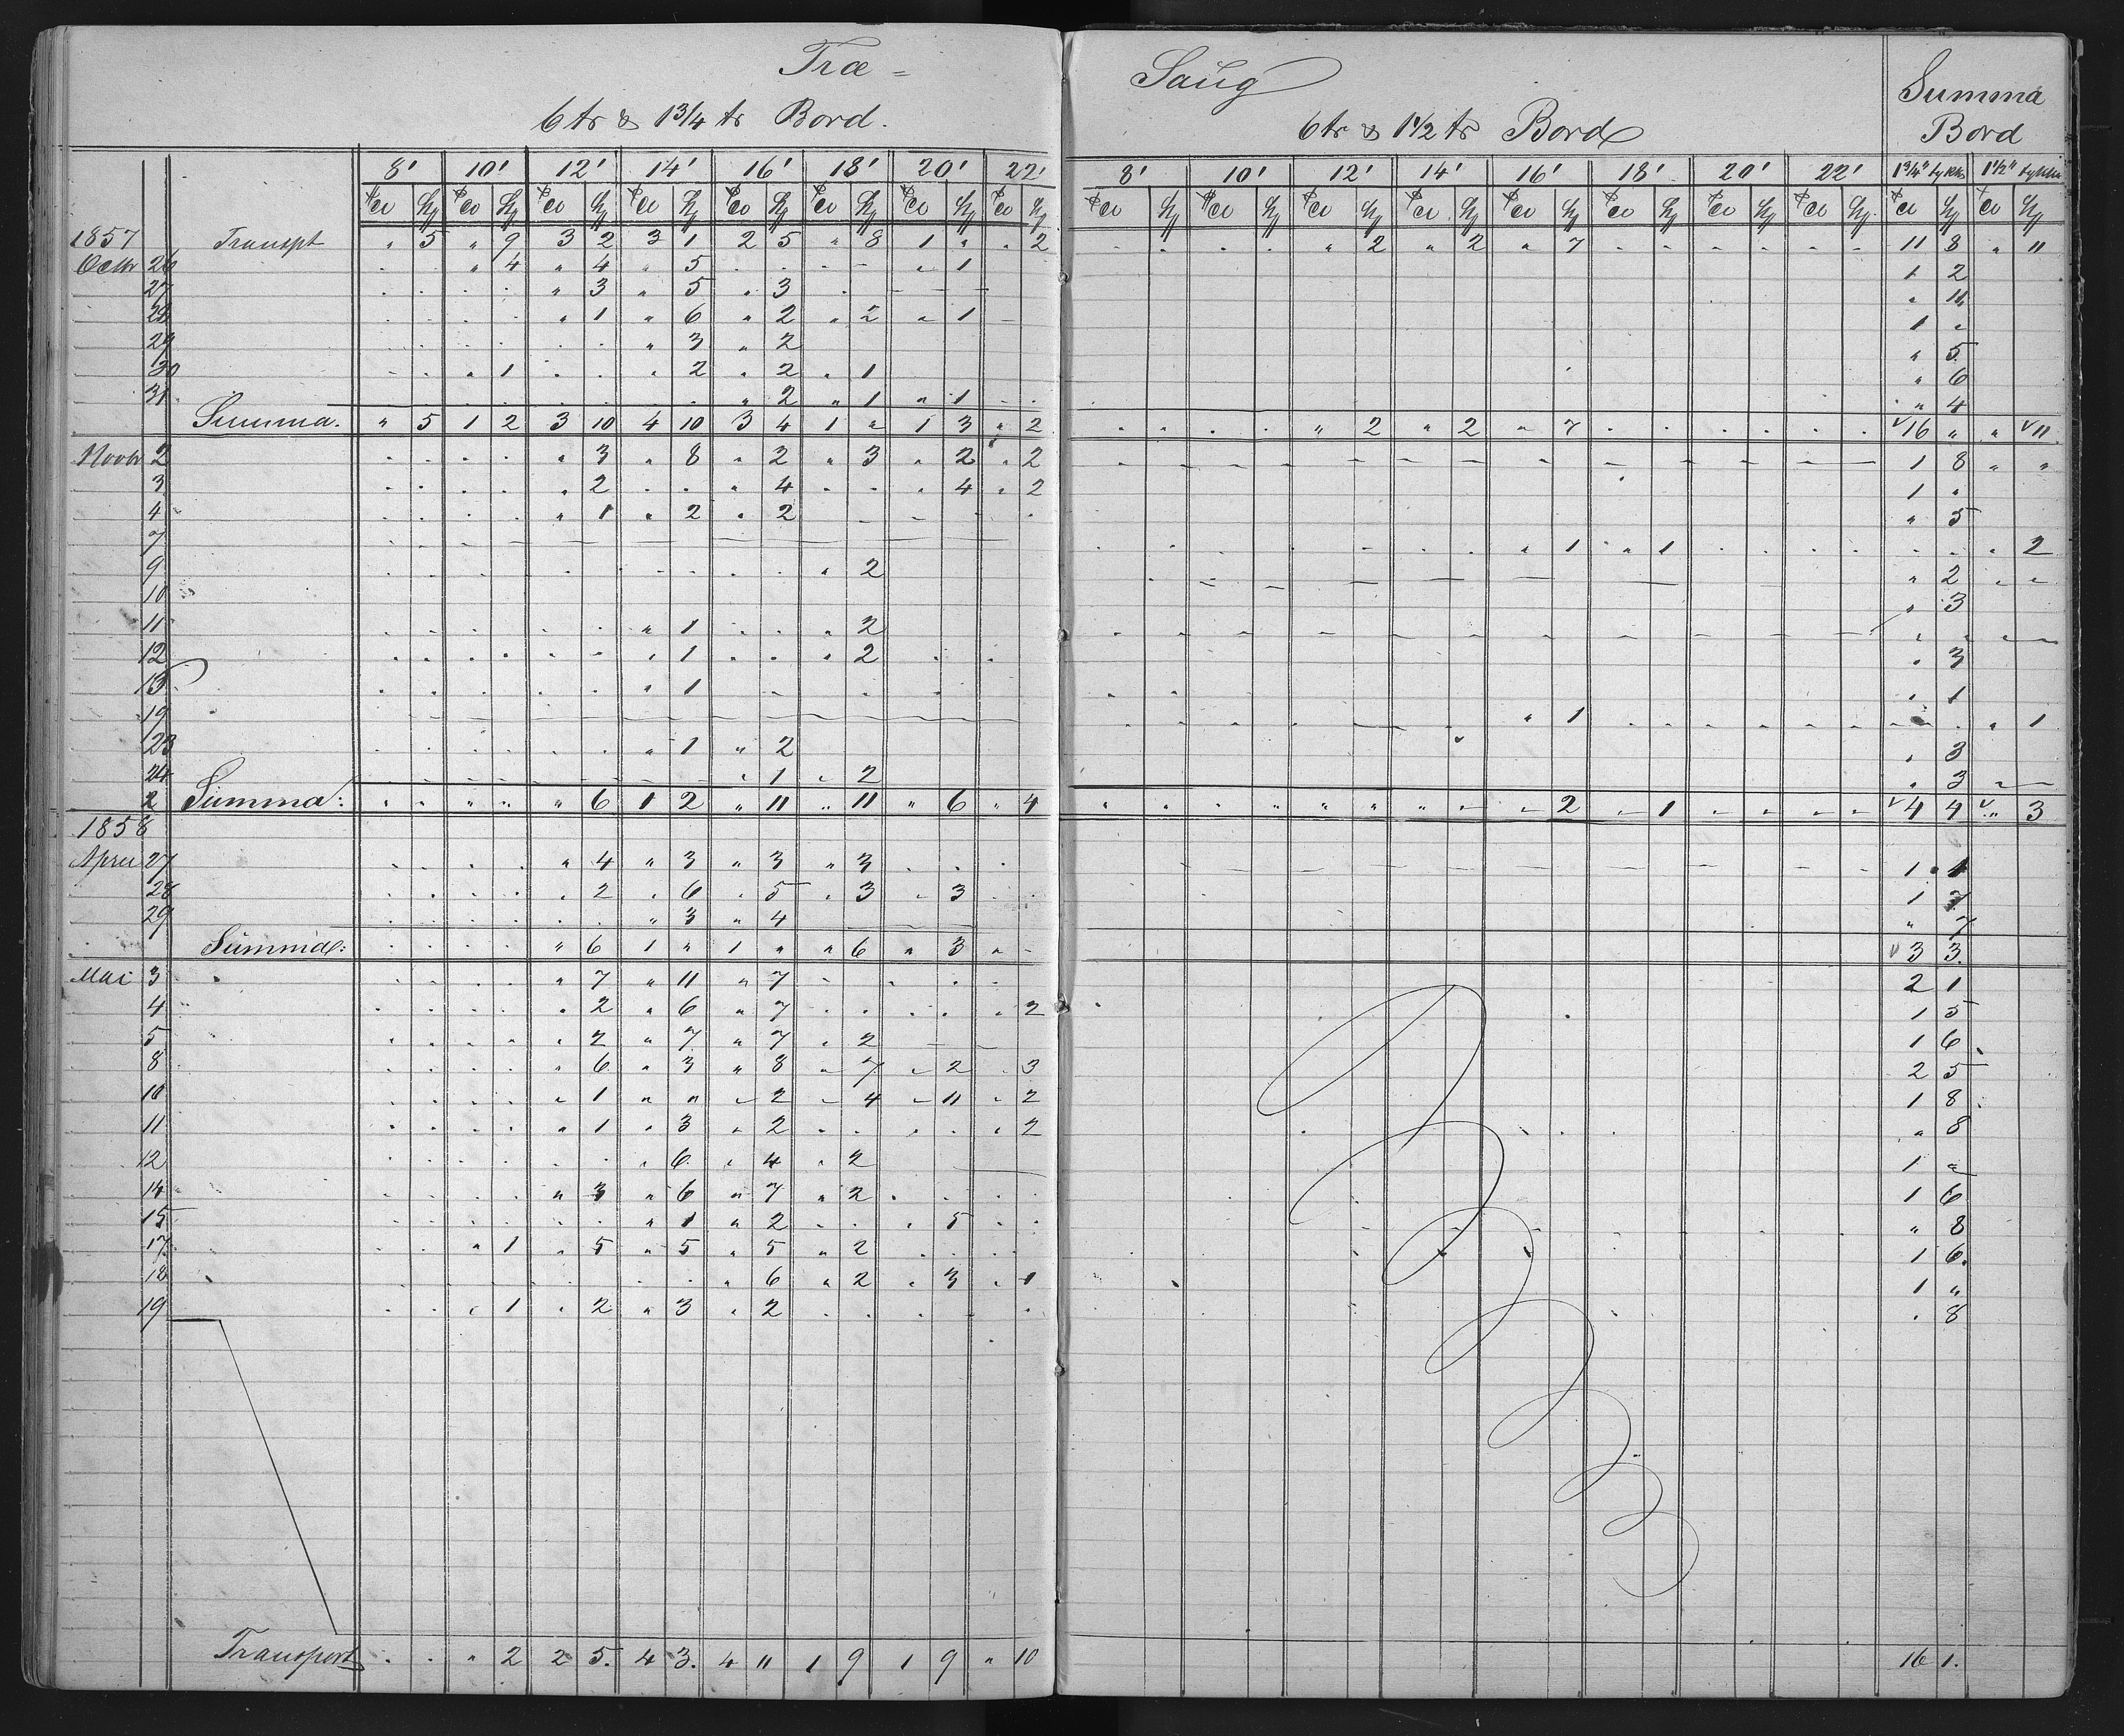 Træ = Saug
6 tr & 1 3/4 tr Bord. 6 tr & 1 1/2 tr Bord Summa Bord
8' 10' 12' 14' 16' 18' 20' 22' 8' 10' 12' 14' 16' 18' 20' 22' 1 3/4" tykke 1 1/2" tykke
1857 Transpt " 5 " 9 3 2 3 1 2 5 " 8 1 " " 2 " 2 " 2 " 7 11 8 " 11
Octbr 26 " 4 " 4 " 5 " 1 1 2
27 " 3 " 5 " 3 " 11
28 " 1 " 6 " 2 " 2 " 1 1 "
29 " 3 " 2 " 5
30 " 1 " 2 " 2 " 1 " 6
31 " 2 " 1 " 1 " 4
Summa. " 5 1 2 3 10 4 10 3 4 1 " 1 3 " 2 " 2 " 2 " 7 16 " " 11
Novbr 2 " 3 " 8 " 2 " 3 " 2 " 2 1 8 " "
3 " 2 " 4 " 4 " 2 1 "
4 " 1 " 2 " 2 " 5
7 " 1 " 1 " 2
9 " 2 " 2 " "
10 " 3
11 " 1 " 2
12 " 1 " 2 " 3
13 " 1 " 1
19 " 1 " 1
23 " 1 " 2 " 3
24 " 1 " 2 " 3
2 Summa: " 6 1 2 " 11 " 11 " 6 " 4 " 2 " 1 4 4 " 3
1858
April 27 " 4 " 3 " 3 " 3 1 1
28 " 2 " 6 " 5 " 3 " 3 1 7
29 " 3 " 4 " 7
Summa: " 6 1 " 1 " " 6 " 3 3 3.
Mai 3 " 7 " 11 " 7 2 1
4 " 2 " 6 " 7 " 2 1 5
5 " 2 " 7 " 7 " 2 1 6
8 " 6 " 3 " 8 " 7 " 2 " 3 2 5
10 " 1 " " " 2 " 4 " 11 " 2 1 8
11 " 1 " 3 " 2 " 2 " 8
12 " 6 " 4 " 2 1 "
14 " 3 " 6 " 7 " 2 1 6
15 " 1 " 2 " 5 " 8
17 " 1 " 5 " 5 " 5 " 2 1 6.
18 " 6 " 2 " 3 " 1 1 "
19 " 1 " 2 " 3 " 2 " 8
Transport " 2 2 5. 4 3. 4 11 1 9 1 9 " 10 16 1.